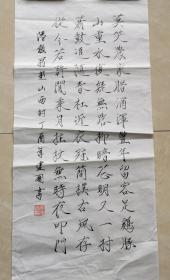 莫笑農家臘酒渾豐年留客足鷄豚
山重水復疑無路柳暗花明又一村
簫鼓追隨春社近衣冠簡樸古風存
從今若許閑乘月拄杖無時夜叩門
陸放翁游山西村
書